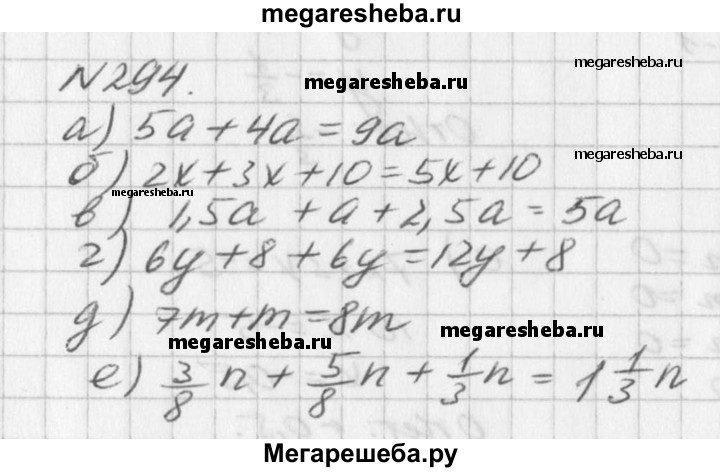 megaresheba.ru
N 294.
megaresheba.ru
megaresheba.ru
а) 5a + 4a = 9a
б) 2x + 3x + 10 = 5x + 10
megaresheba.ru
megaresheba.ru
в) 1,5a + a + 2,5a = 5a
г) 6y + 8 + 6y = 12y + 8
д) 7m + m = 8m
megaresheba.ru
megaresheba.ru
е) 3/8 n + 5/8 n + 1/3 n = 1 1/3 n
Мегарешеба.ру